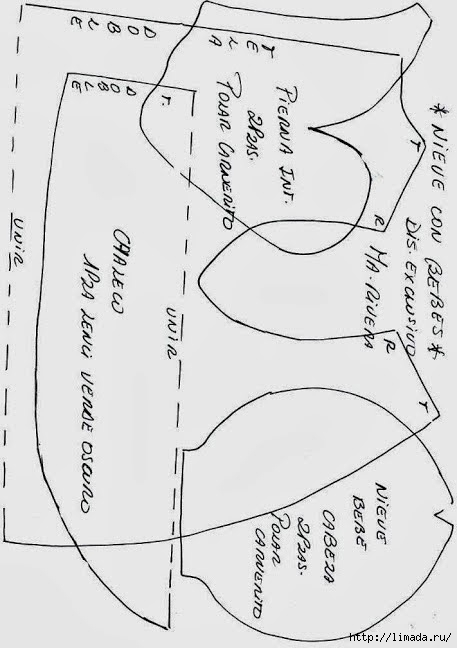 *NIEVE CON BEBES*
DIS. EXCLUSIVO
MA. RIVERA
T
R
R
T
PIERNA INT.
2PZAS.
POLAR CARNERITO
TELA
DOBLE
T.
DOBLE
UNIR
UNIR
CHALECO
1PZA LENCI VERDE OSCURO
NIEVE
BEBE
CABEZA
2PZAS.
POLAR
CARNERITO
http://limada.ru/